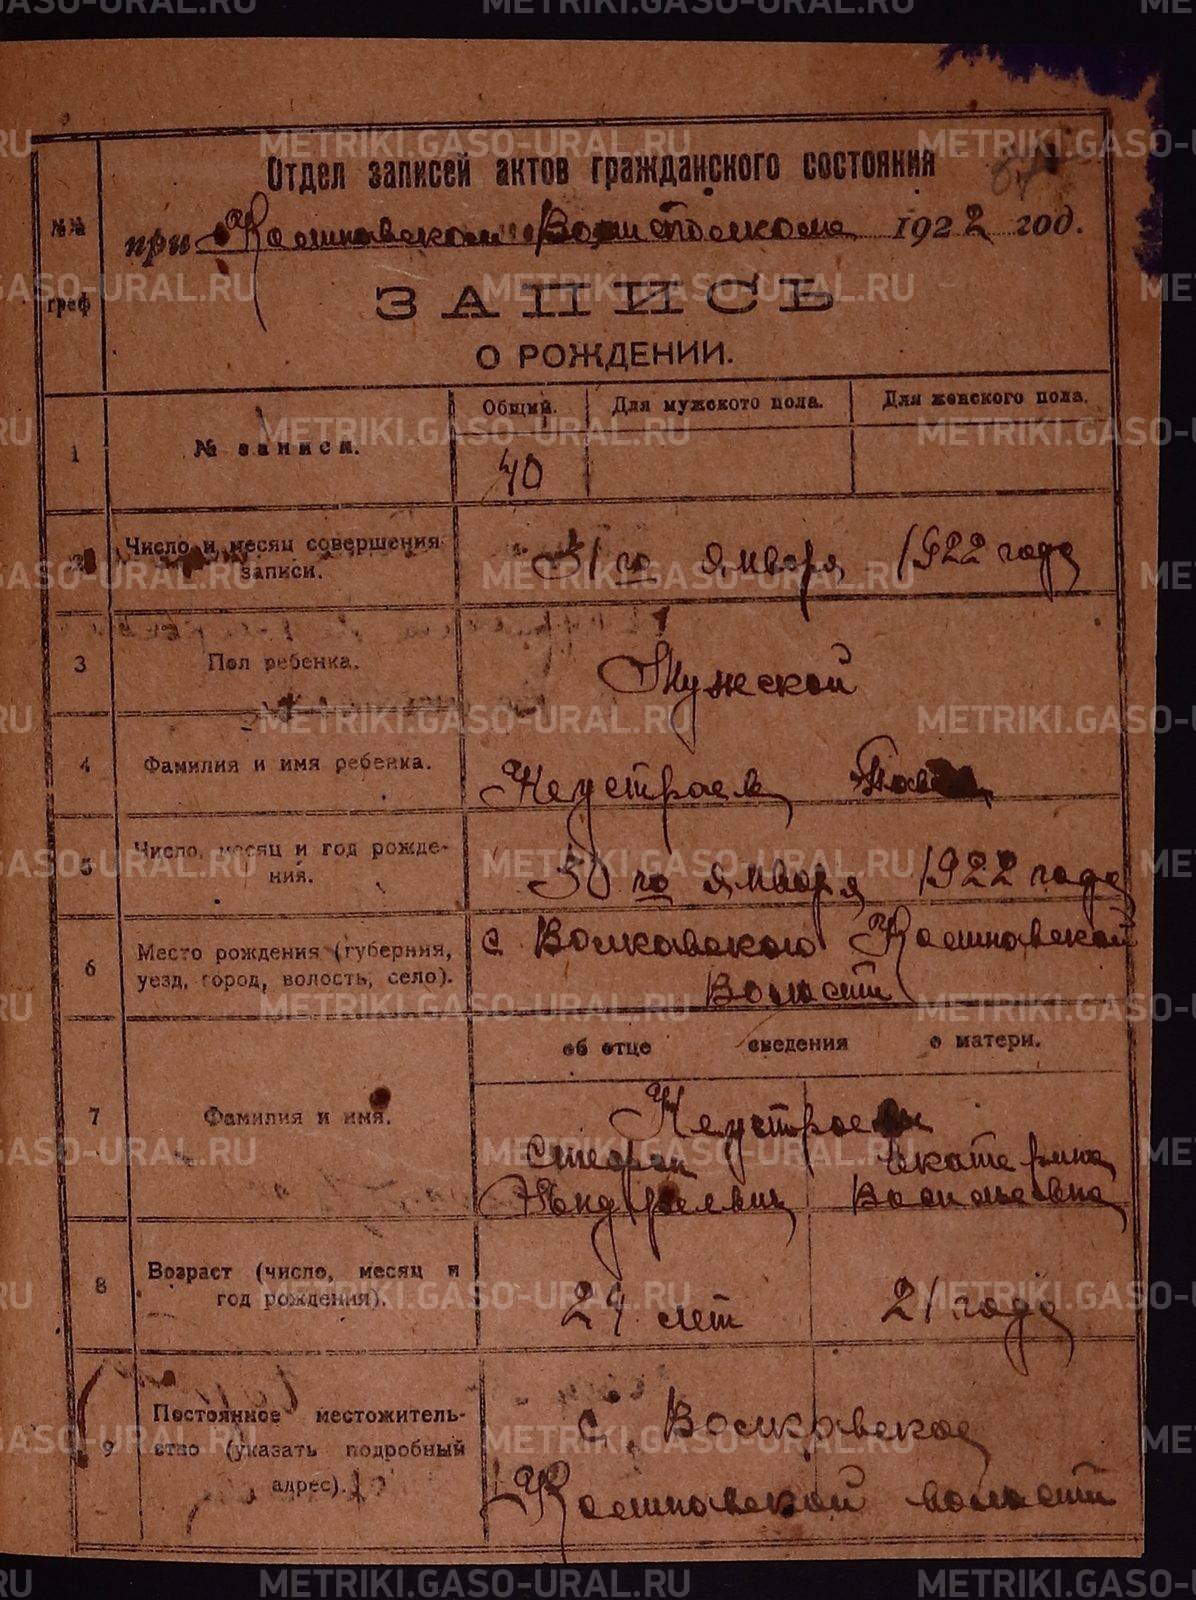 Отдел записей актов гражданского состояния
№№ граф
при Колчеданском Волисполкоме 1922 год.
ЗАПИСЬ
О РОЖДЕНИИ.
Общий. Для мужского пола. Для женского пола.
1 № записи. 40
2 Число и месяц совершения записи. 31 го января 1922 года
3 Пол ребенка. Мужской
4 Фамилия и имя ребенка. Неустроев
5 Число, месяц и год рождения. 30 го января 1922 года
6 Место рождения (губерния, уезд, город, волость, село). с Волковского
Волости
об отце сведения о матери.
7 Фамилия и имя. Неустроевы
Стефан Екатерина
Андреевич Васильевна
8 Возраст (число, месяц и год рождения). 24 лет 21 года
9 Постоянное местожительство (указать подробный адрес). с. Волковское
волости
METRIKI.GASO-URAL.RU